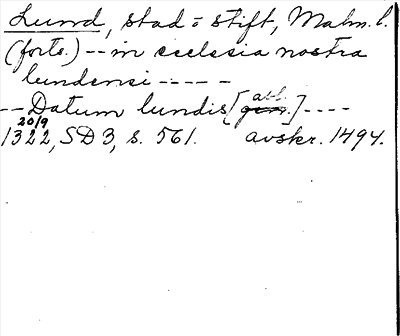 Lund, stad o stift, Malm. l.
(forts.) -- in ecclesia nostra
lundensi -----
-- Datum lundis [gen. abl.] ----
1322, 20/9 SD 3, s. 561. avskr. 1494.